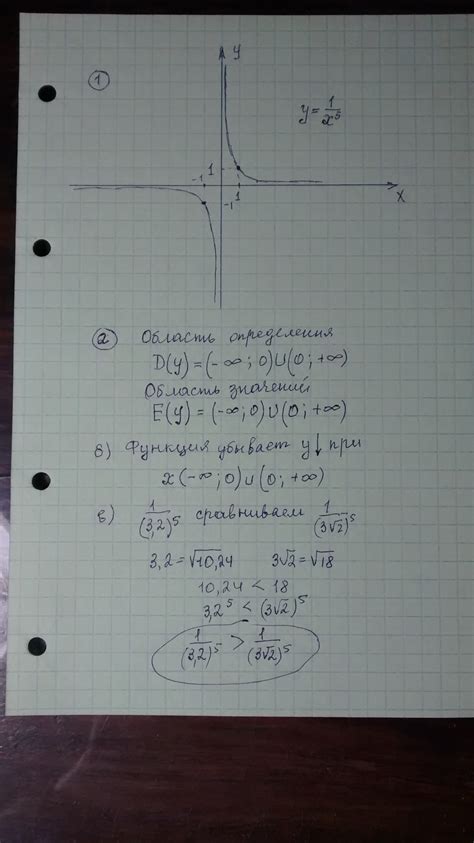 ① y
y = 1/x⁵
1
-1 1 x
-1
② Область определения
D(y) = (-∞; 0)∪(0; +∞)
Область значений
E(y) = (-∞; 0)∪(0; +∞)
б) Функция убывает y↓ при
x (-∞; 0)∪(0; +∞)
в) 1/(3,2)⁵ сравниваем 1/(3√2)⁵
3,2 = √10,24 3√2 = √18
10,24 < 18
3,2⁵ < (3√2)⁵
1/(3,2)⁵ > 1/(3√2)⁵